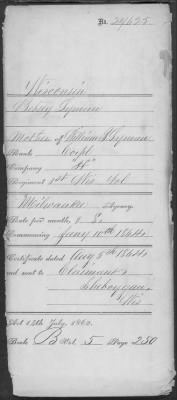 No. 24,625
Wisconsin
Betsey Lyman
Mother of William P. Lyman
Rank Corpl
Company "H"
Regiment 1st Wis Vol
Milwaukee Agency.
Rate per month, $ 8.
Commencing Jany 10th 1864.
Certificate dated Aug 5th 1864
and sent to Claimant
Sheboygan
Wis
Act 14th July, 1862.
Book B Vol. 5 Page 250